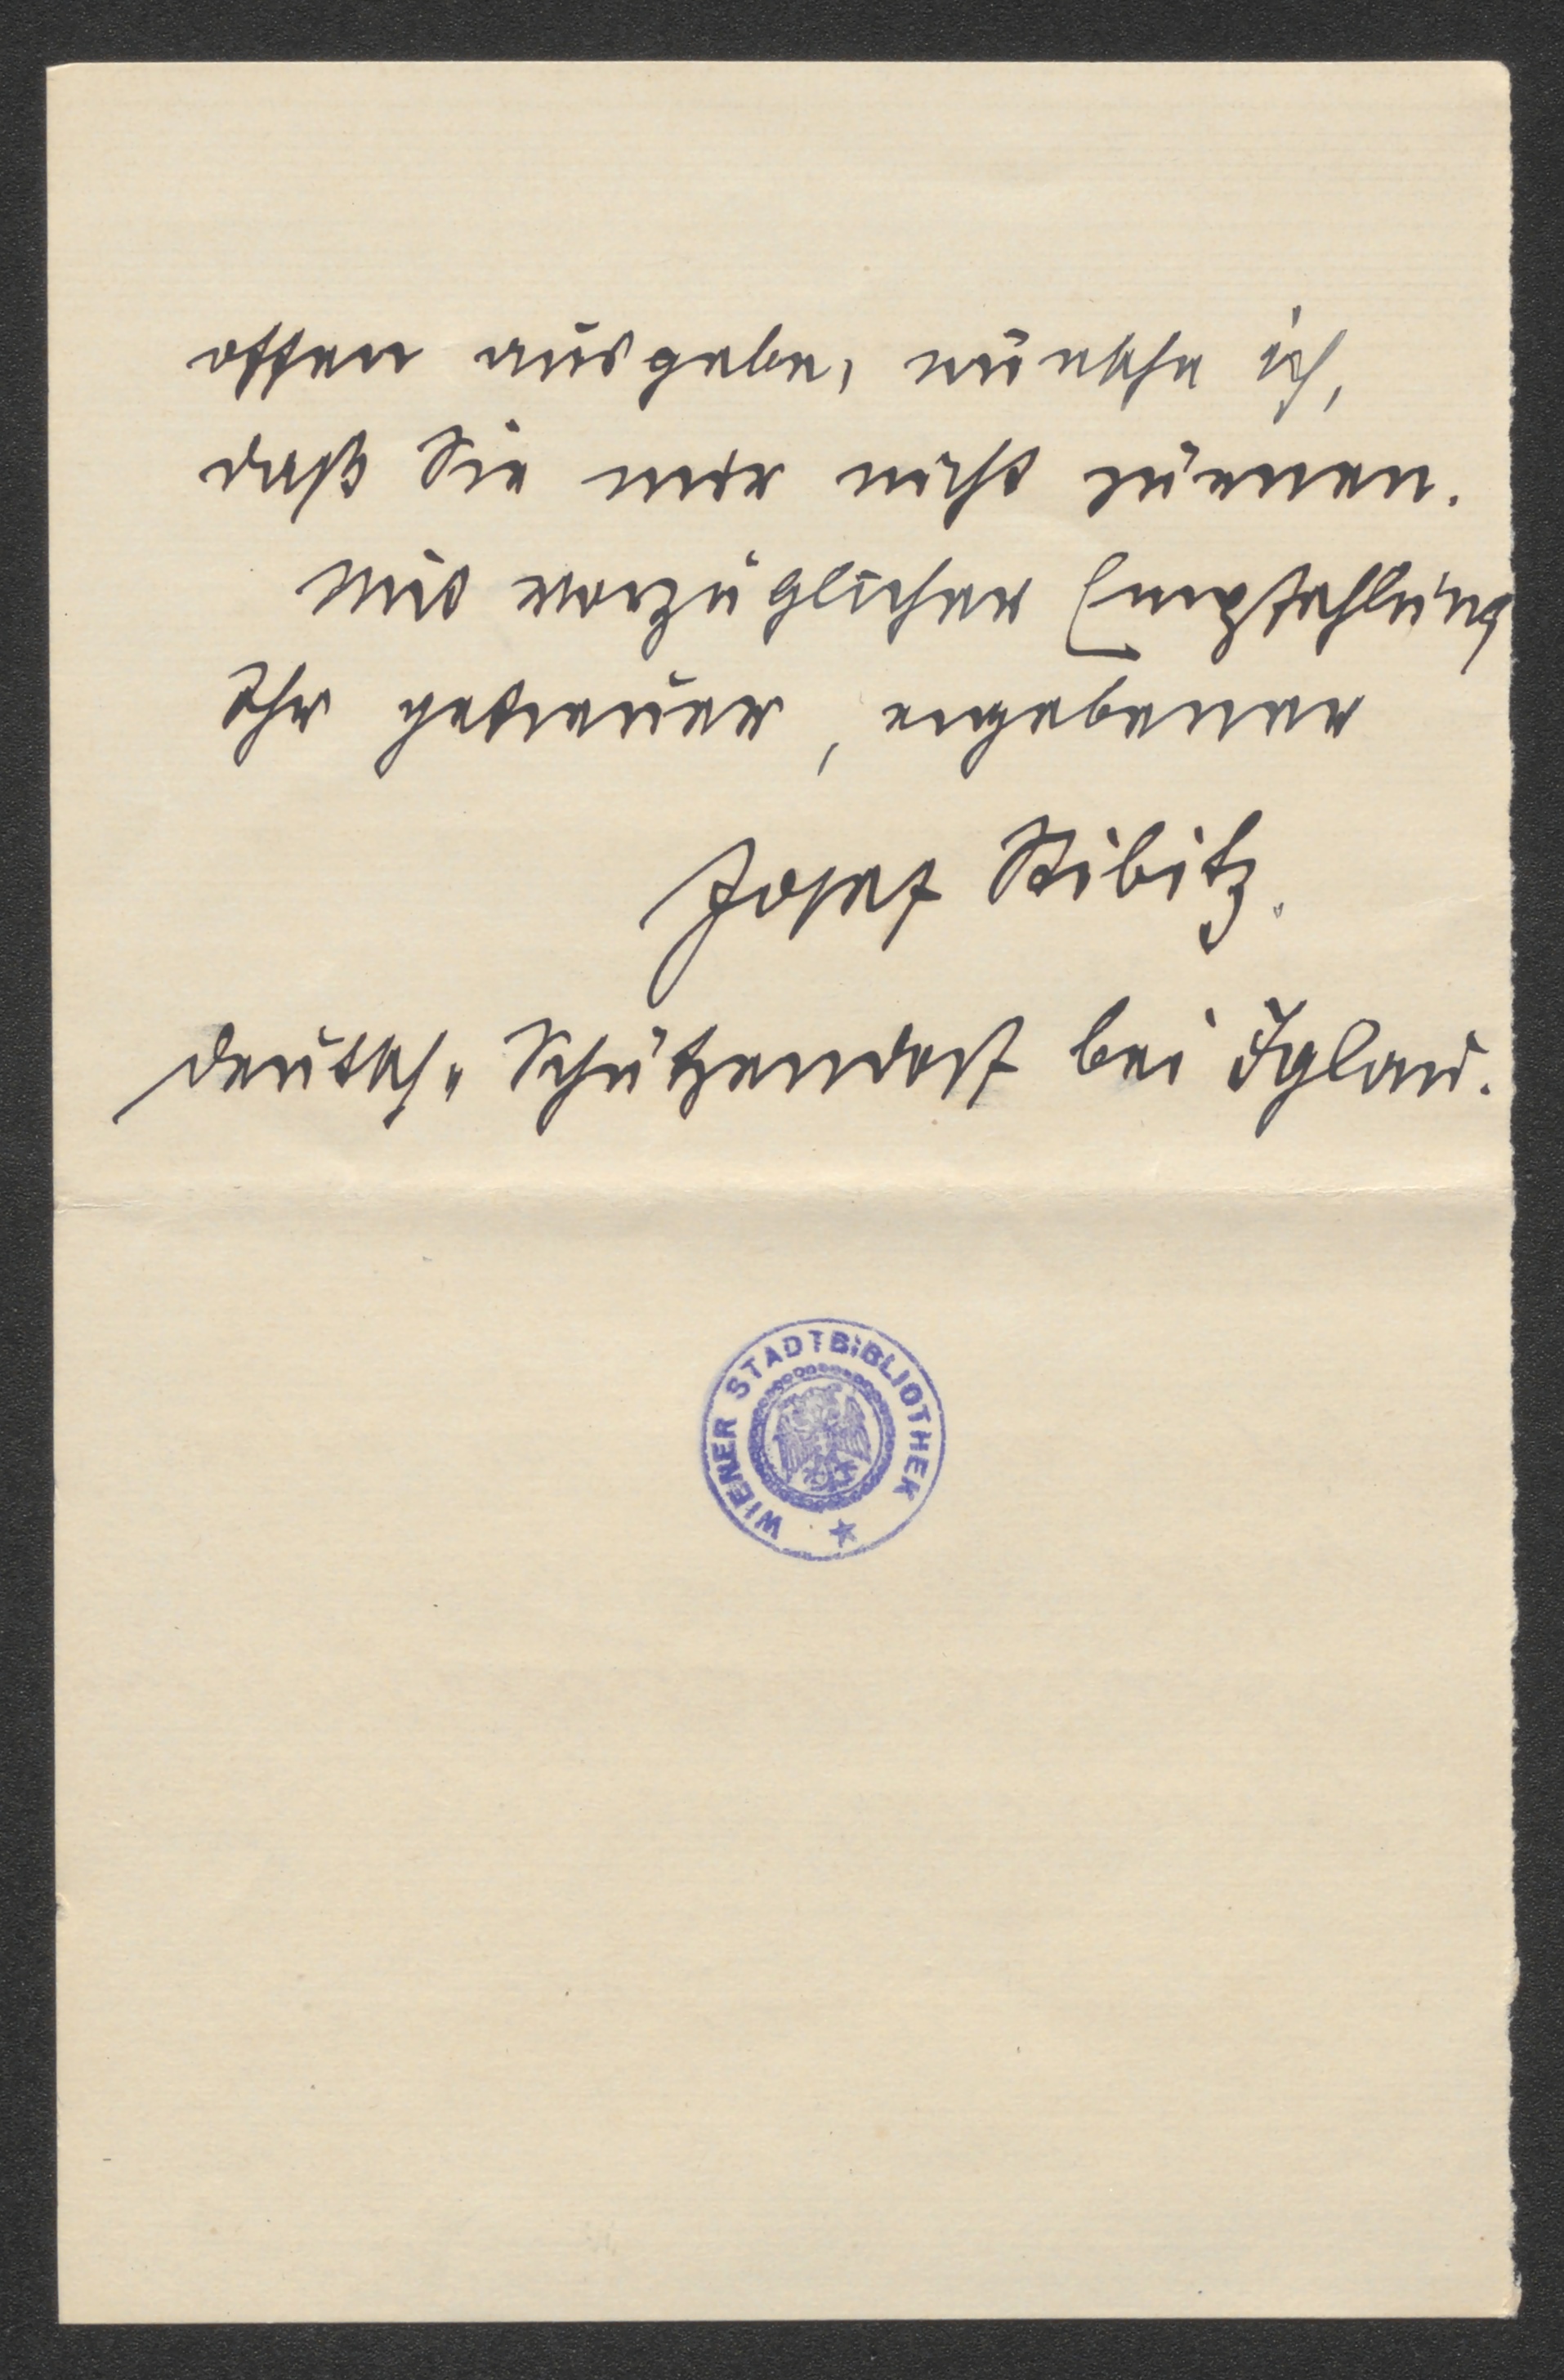 offen ausgebe, wünsche ich,
daß Sie mir nicht zürnen.
Mit vorzüglicher Empfehlung
Ihr getreuer, ergebener
Josef Stibitz.
Deutsch-Schützendorf bei Iglau.
WIENER STADTBIBLIOTHEK